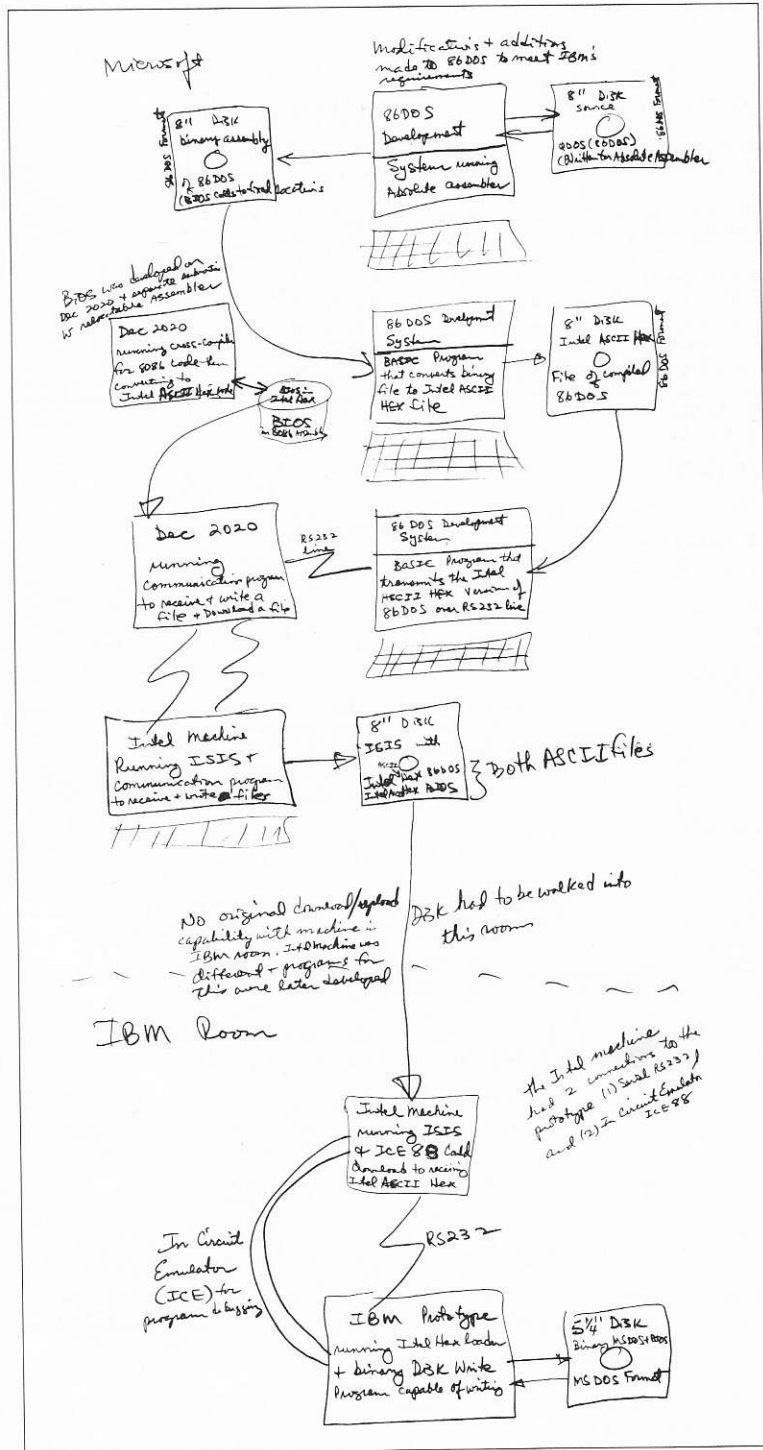 Microsoft
Modifications + additions
made to 86DOS to meet IBM's
requirements
8" Disk
binary assembly
of 86DOS
(BIOS calls to fixed locations
86DOS Format
86DOS
Development
System running
Absolute assembler
8" Disk
source
QDOS (86DOS)
(Written for Absolute Assembler
86DOS Format
BIOS was developed on
Dec 2020 + separate
w relocatable Assembler
Dec 2020
running cross-compiler
for 8086 code then
converting to
Intel ASCII Hex
BIOS in
Intel Hex
BIOS
in 8086 Assembly
86DOS Development
System
BASIC Program
that converts binary
file to Intel ASCII
HEX file
8" Disk
Intel ASCII HEX
File of compiled
86DOS
86DOS Format
Dec 2020
running
Communication program
to receive + write a
file + Download a file
RS232
line
86DOS Development
System
BASIC Program that
transmits the Intel
ASCII HEX version of
86DOS over RS232 line
Intel Machine
Running ISIS +
Communication program
to receive + write files
8" Disk
ISIS with
ASCII
Intel Hex 86DOS
Intel Hex BIOS
Both ASCII files
No original download/upload
capability with machine in
IBM room. Intel Machine was
different + programs for
this were later developed
Disk had to be walked into
this room
IBM Room
the Intel machine
had 2 connections to the
prototype (1) Serial RS232
and (2) In Circuit Emulator
ICE88
Intel Machine
running ISIS
& ICE88 Could
download to receiving
Intel ASCII Hex
In Circuit
Emulator
(ICE) for
program debugging
RS232
IBM Prototype
running Intel Hex loader
+ binary Disk Write
Program capable of writing
5 1/4" Disk
Binary MSDOS+BIOS
MSDOS Format